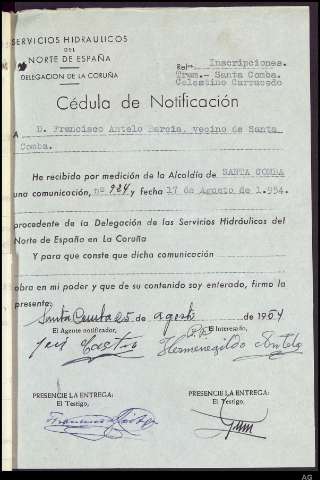 SERVICIOS HIDRAULICOS
DEL
NORTE DE ESPAÑA
DELEGACION DE LA CORUÑA
Ref.- Inscripciones.
Tram.- Santa Comba.
Celestino Carracedo
Cédula de Notificación
A D. Francisco Antelo Barcia, vecino de Santa
Comba.
He recibido por medición de la Alcaldía de SANTA COMBA
una comunicación, nº 984 y fecha 17 de Agosto de 1.954.
procedente de la Delegación de los Servicios Hidráulicos del
Norte de España en La Coruña
Y para que conste que dicha comunicación
obra en mi poder y que de su contenido soy enterado, firmo la
presente.
Santa Comba 25 de agosto de 1954
El Agente notificador, P.A. El Interesado,
José Castro Hermenegildo Antelo
PRESENCIE LA ENTREGA: PRESENCIE LA ENTREGA:
El Testigo, El Testigo,
Francisco
AG